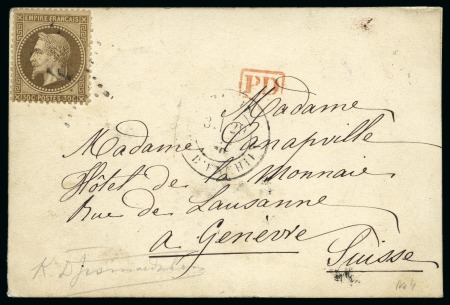 EMPIRE FRANÇAIS
30C POSTES 30C
PD
Madame
Madame Canapville
Hôtel de la Monnaie
Rue de Lausanne
a Genèvre
Suisse